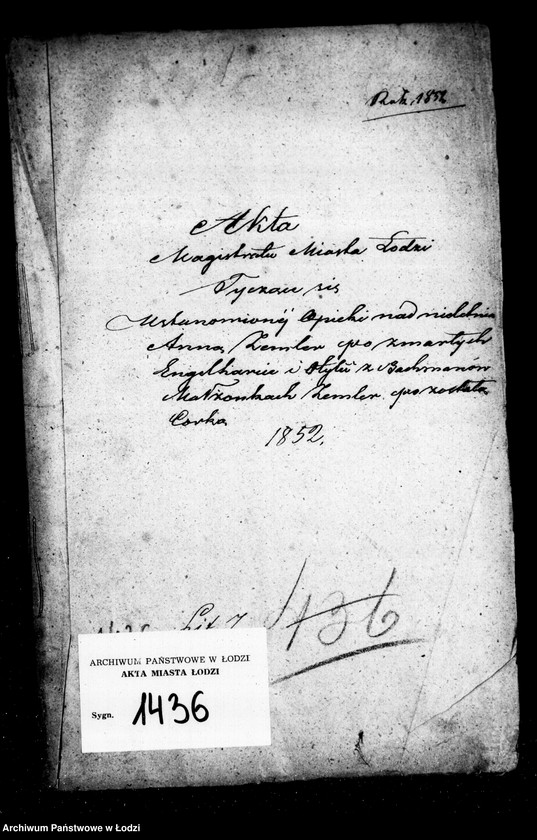 Rok, 1852
Akta
Magistratu Miasta Łodzi
Tyczące się
Ustanowionéj Opieki nad nieletnią
Anną Zemler po zmarłych
Engelharcie i Otylii z Bachmanów
Małżonkach Zemler pozostałą
Córką
1852.
1436 Lit Z
1436
ARCHIWUM PAŃSTWOWE W ŁODZI
AKTA MIASTA ŁODZI
Sygn. 1436
Archiwum Państwowe w Łodzi